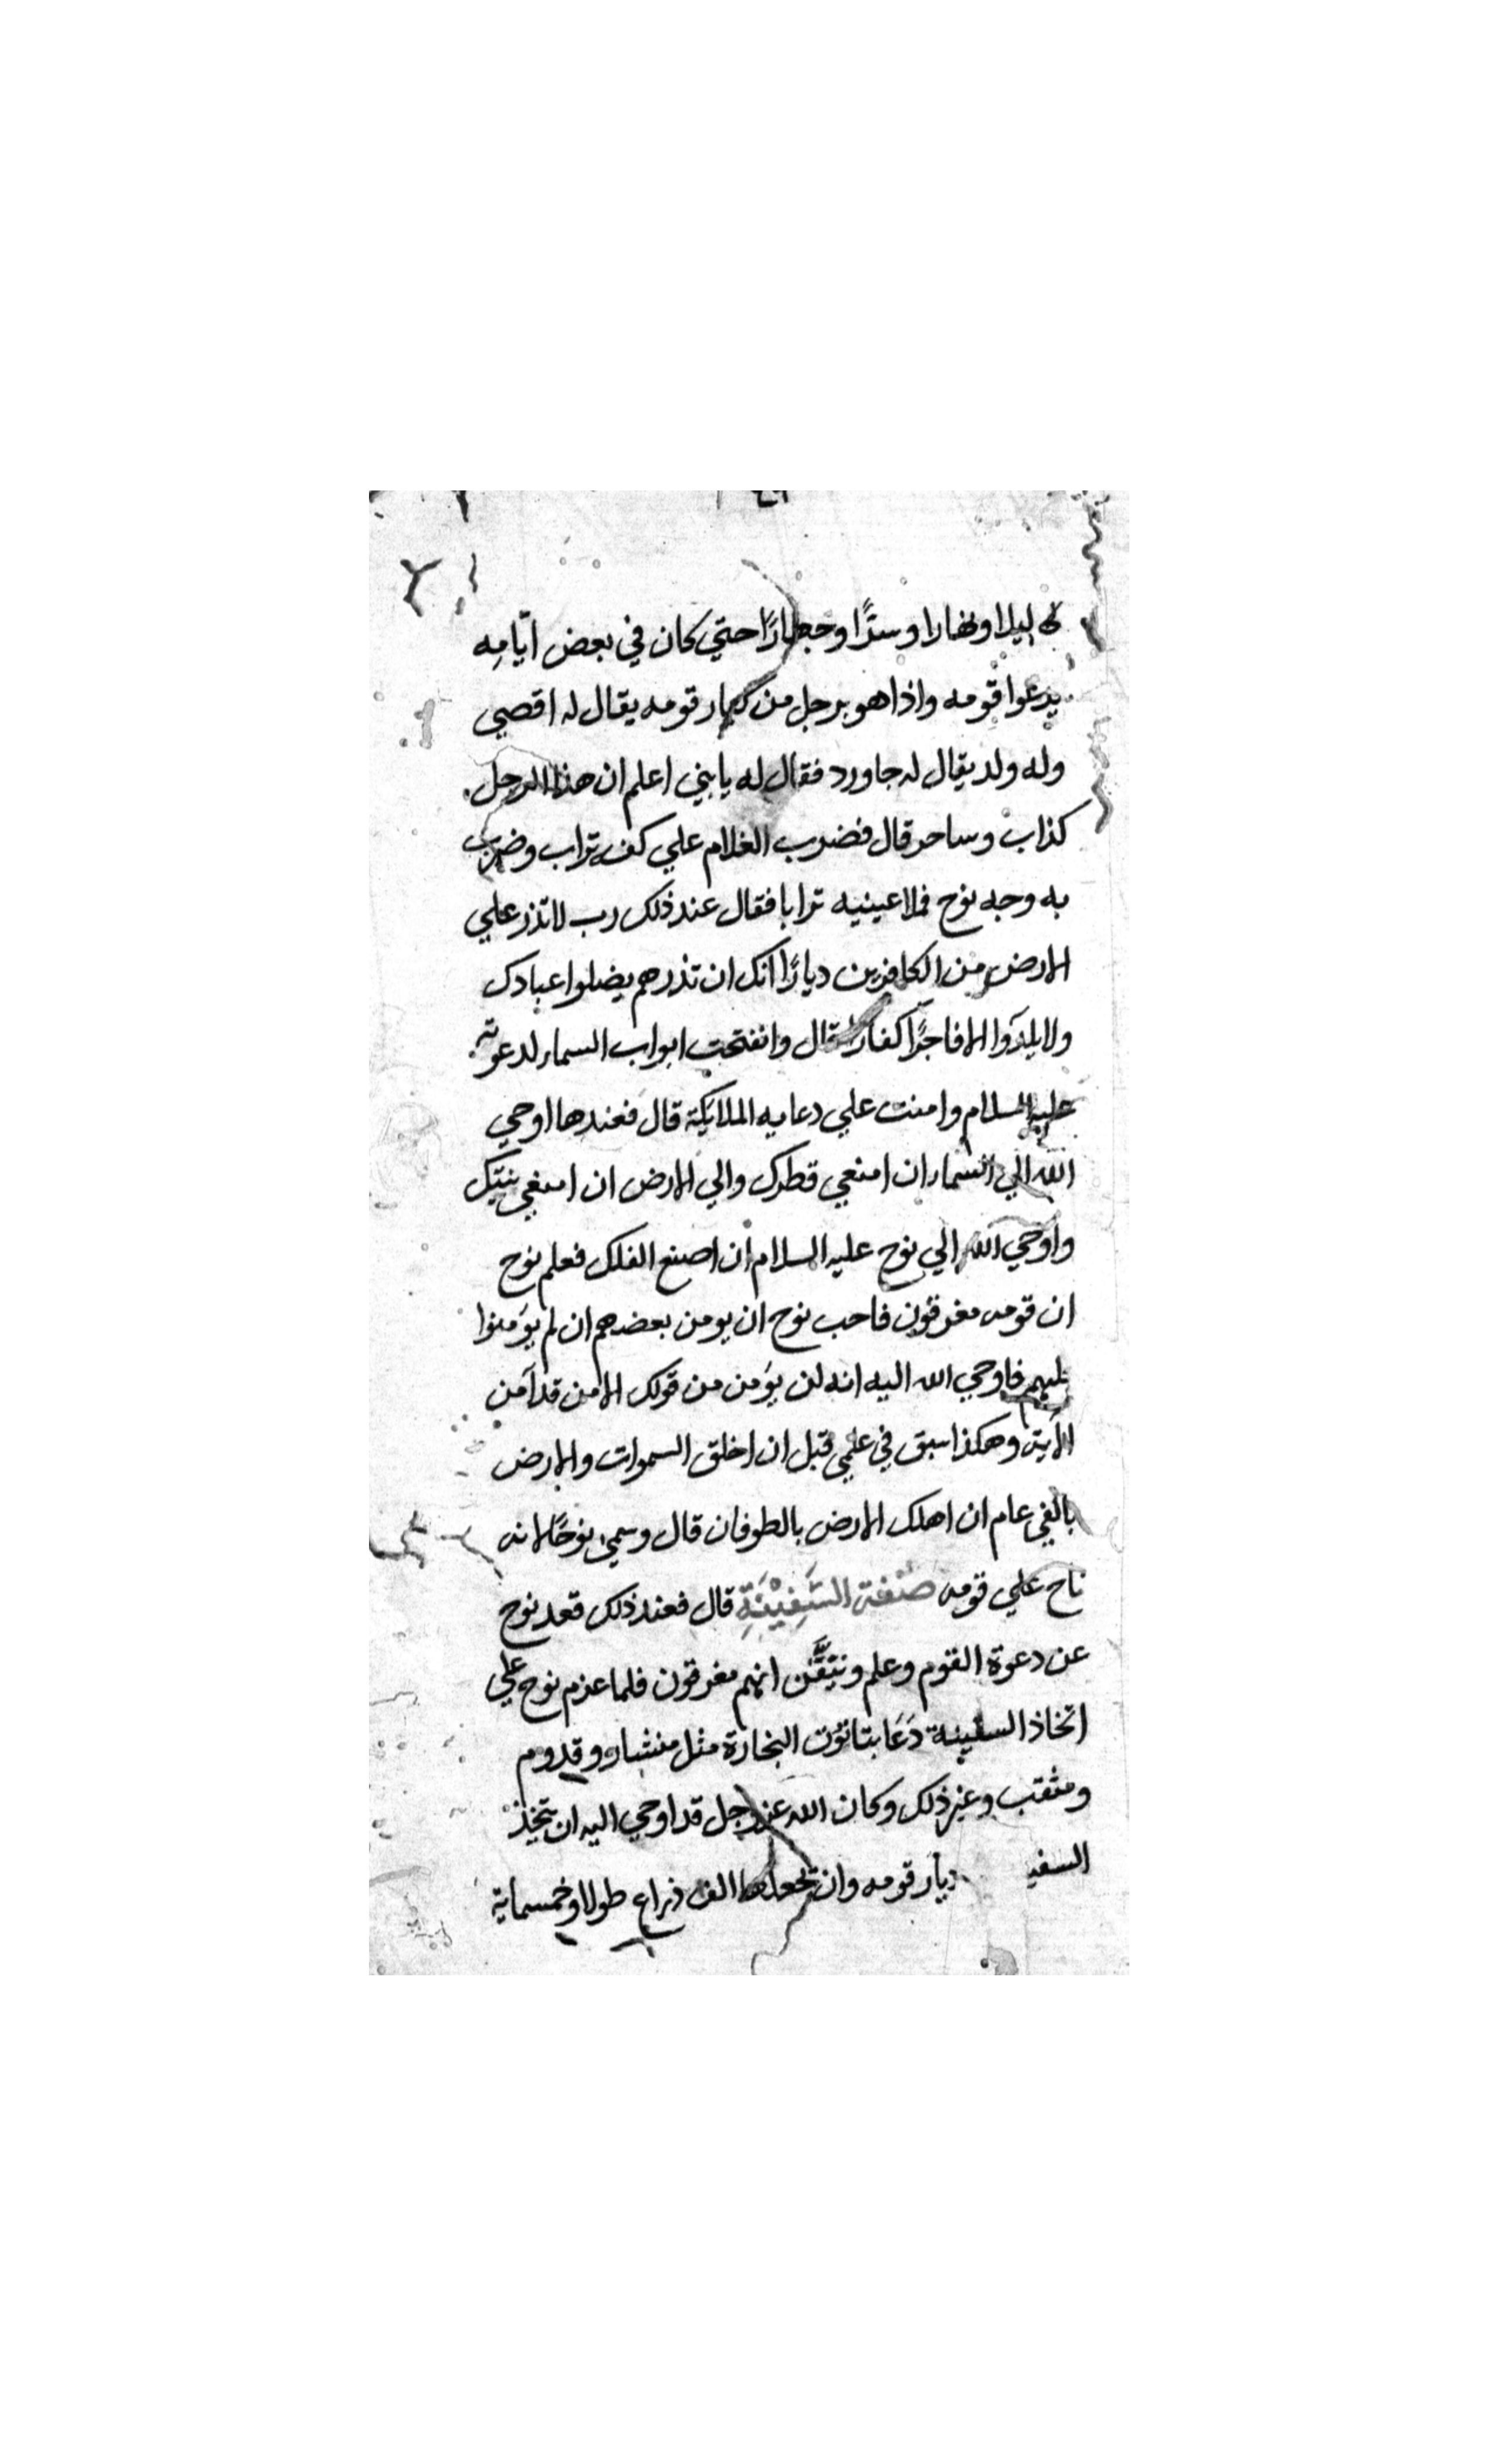 ليلا ونهارا وسرًا وجهارًا حتي كان في بعض ايّامِه
يدعوا قومه واذا هو برجل من كبار قومه يقال له اقصي
وله ولد يقال له جاورد فقال له يا بني اعلم ان هذا الرجل
كذاب وساحر قال فضرب الغلام علي كف تراب وضرب
به وجه نوح فملا عينيه ترابا فقال عند ذلك رب لا تذر علي
الارض من الكافرين ديارًا انك ان تذرهم يضلوا عبادك
ولا يلدوا الا فاجرًا كفارا قال وانفتحت ابواب السماء لدعوته
عليه السلام وامنت علي دعايه الملايكة قال فعندها اوحي
الله الي السماء ان امنعي قطرك والي الارض ان امنعي نبتك
واوحي الله الي نوح عليه السلام ان اصنع الفلك فعلم نوح
ان قومه مغرقون فاحب نوح ان يومن بعضهم ان لم يؤمنوا
كلهم فاوحي الله اليه انه لن يؤمن من قومك الا من قد آمن
الآية وهكذا سبق في علمي قبل ان اخلق السموات والارض
بالفي عام ان اهلك الارض بالطوفان قال وسمي نوحًا لانه
ناح علي قومه صفة السَّفِيْنَةِ قال فعند ذلك قعد نوح
عن دعوة القوم وعلم وتيَقَّن انهم مغرقون فلما عزم نوح علي
اتخاذ السفينة دَعَا بتابُوت النجارة مثل منشار وقدوم
ومثقب وغير ذلك وكان الله عز وجل قد اوحي اليه ان يتخذ
السفي ديار قومه وان تجعلها الف ذراع طولا وخمسماية